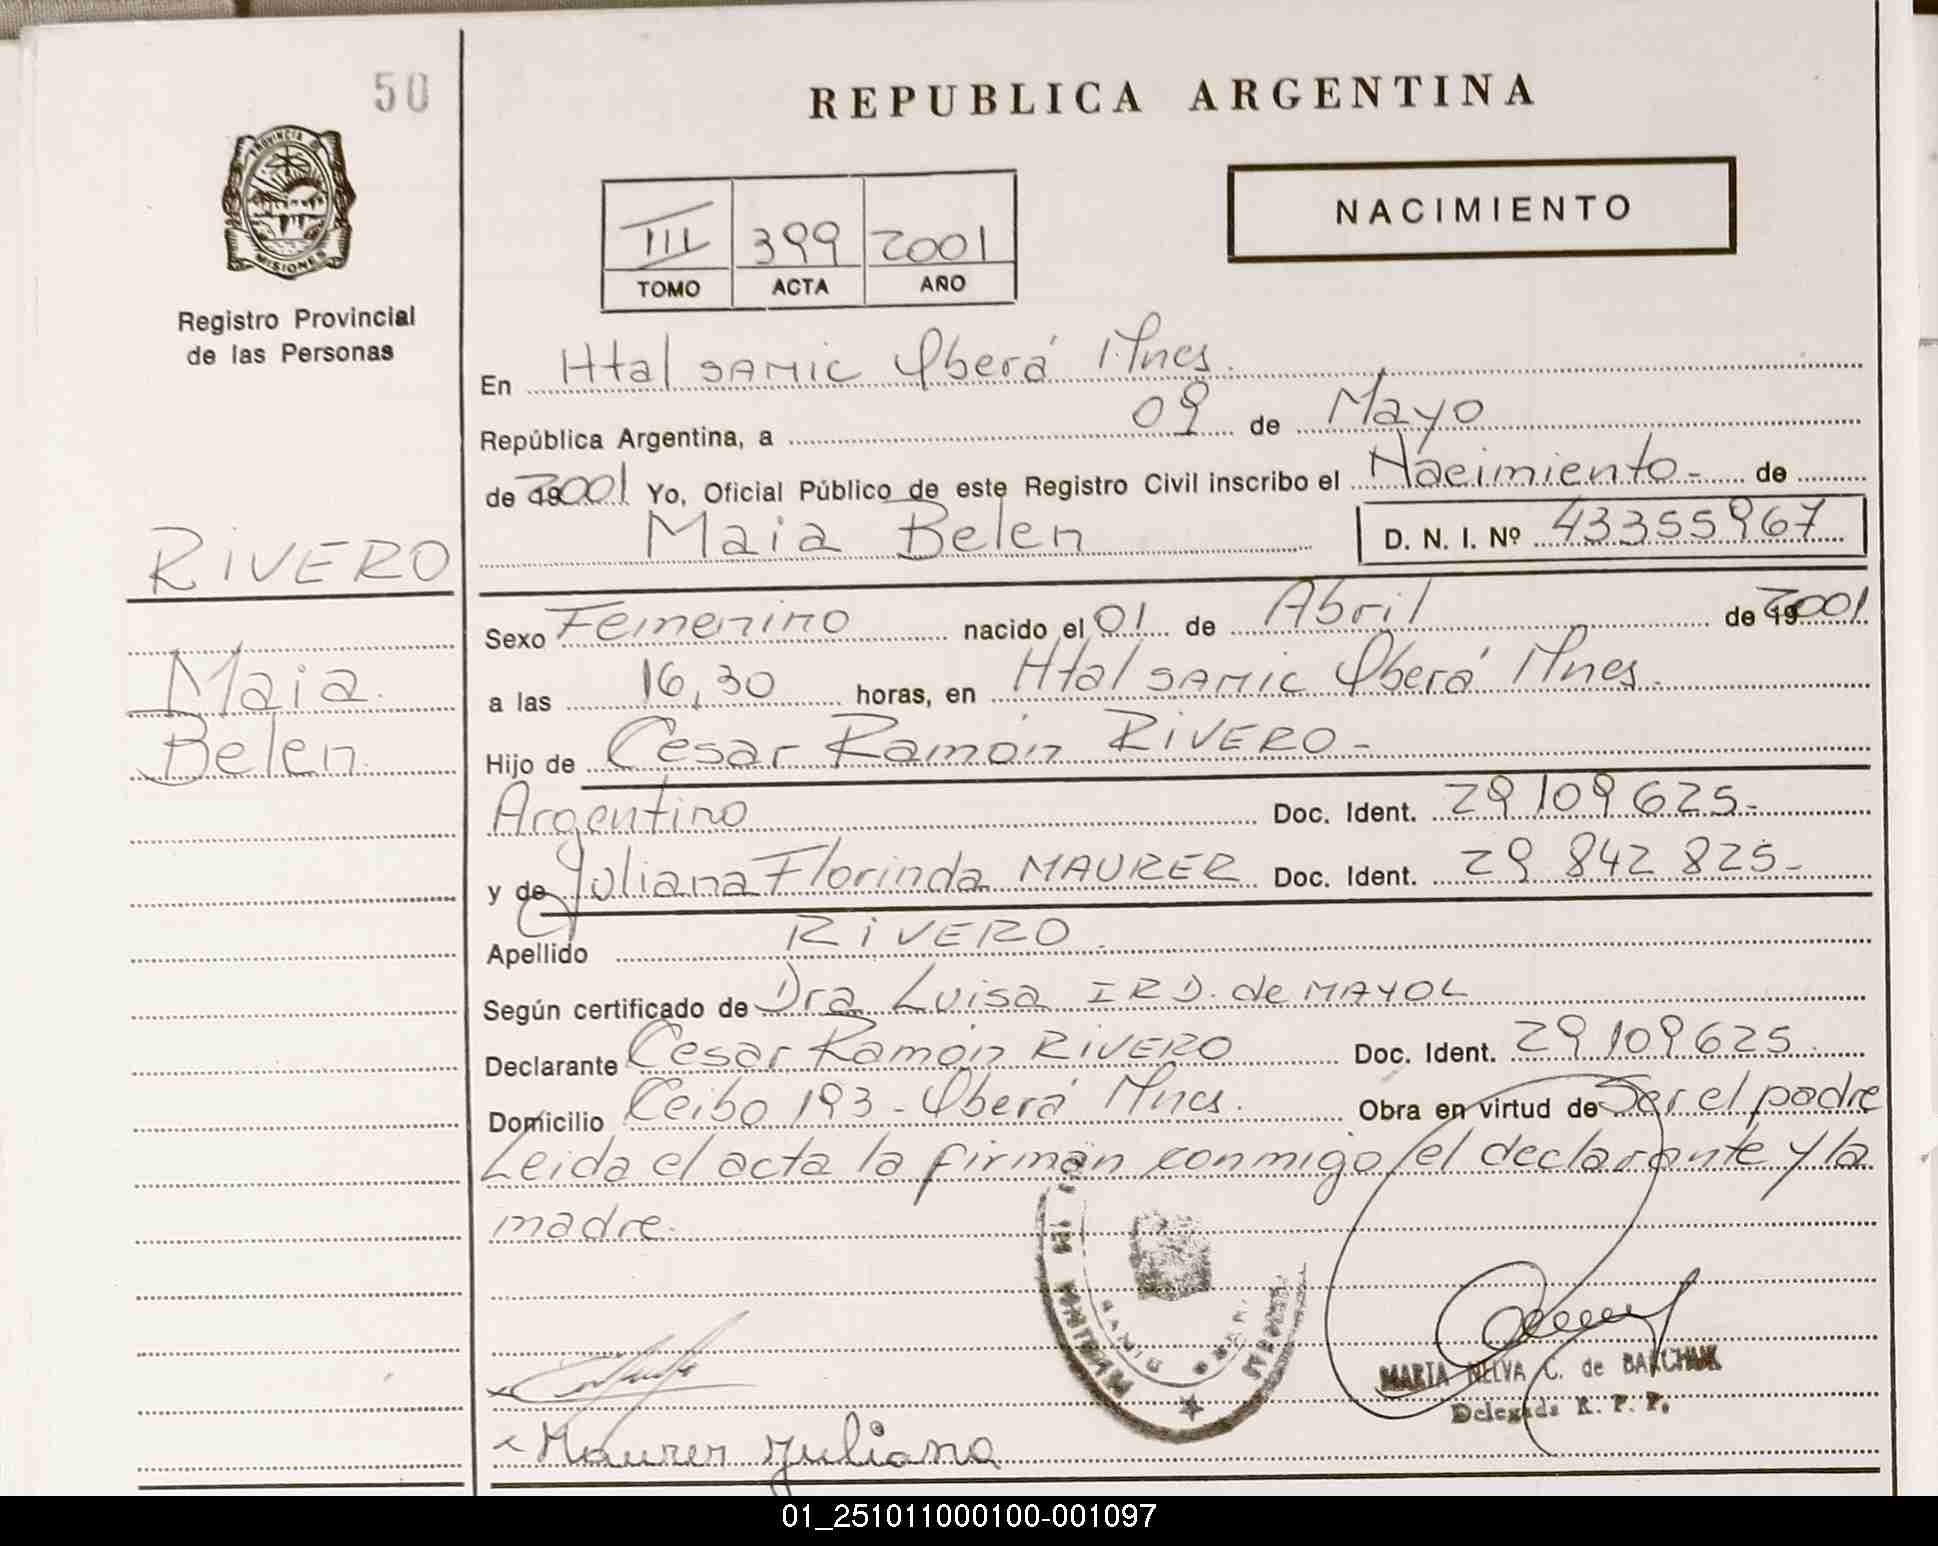 50
REPUBLICA ARGENTINA
PROVINCIA D
MISIONES
NACIMIENTO
III 399 2001
TOMO ACTA AÑO
Registro Provincial
de las Personas
En Htal SAMIC Oberá Mnes.
República Argentina, a 09 de Mayo
de 2001 Yo, Oficial Público de este Registro Civil inscribo el Nacimiento.- de
Maia Belen D. N. I. Nº 43355967
RIVERO
Maia
Belen
Sexo Femenino nacido el 01 de Abril de 2001
a las 16,30 horas, en Htal SAMIC Oberá Mnes.
Hijo de Cesar Ramón RIVERO-
Argentino Doc. Ident. 29109625-
y de Juliana Florinda MAURER Doc. Ident. 29 842 825-
Apellido RIVERO.
Según certificado de Dra Luisa I R D. de MAYOL
Declarante Cesar Ramón RIVERO Doc. Ident. 29109625
Domicilio Ceibo 193 - Oberá Mnes. Obra en virtud de Ser el padre
Leida el acta la firman conmigo el declarante y la
madre.
MARIA NELVA C. de BARCHUK
Delegada R. P. P.
x Maurer Juliana
01_251011000100-001097